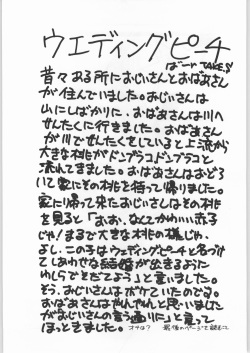 ウエディングピーチ
ばーど TAKE.S
昔々ある所におじいさんとおばあさん
が住んでいました。おじいさんは
山にしばかりに、おばあさんは川へ
せんたくに行きました。おばあさん
が川でせんたくをしていると上流から
大きな桃がドンブラコドンブラコと
流れてきました。おばあさんはおどろ
いて家にその桃を持って帰りました。
家に帰って来たおじいさんはその桃
を見ると「おお、なんてかわいい赤子
じゃ!まるで大きな桃の様じゃ、
よし、この子はウェディングピーチと名づけ
てしあわせな結婚が出きるおに
わしらでそだてよう」と言いました。
そう、おじいさんはボケていたのでる。
おばあさんはやれやれと思いました
がおじいさんの言う通りに」と言って
ほっときました。 オチは? 最後のページで読むこと